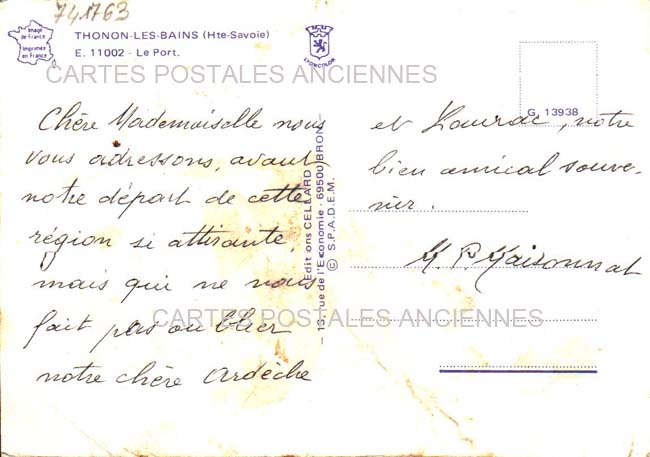 741763
Image
de France
Imprimée
en France
THONON-LES-BAINS (Hte-Savoie)
E. 11002 - Le Port.
LYONCOLOR
CARTES POSTALES ANCIENNES
G. 13938
Chère Mademoiselle nous
vous adressons, avant
notre départ de cette
région si attirante,
mais qui ne nous
fait pas oublier
notre chère Ardèche
Editions CELLARD
— 13, rue de l'Economie - 69500 BRON —
© S.P.A.D.E.M.
et Lauzac, notre
bien amical souve-
nir.
Maisonnat
CARTES POSTALES ANCIENNES